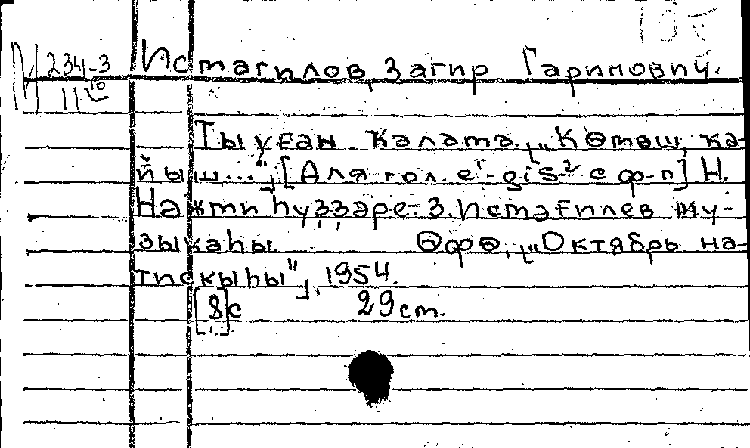 М 234-3
11
Исмагилов, Загир Гарипович.
Тыуған калала. „Көмөш ка-
йыш...“ [Для гол. e¹-gis² с ф-п] Н.
Нәжми һүҙҙәре. З. Исмәғилев му-
зыкаһы. Өфө, „Октябрь на-
тискыһы“, 1954.
[8]с 29 cm.